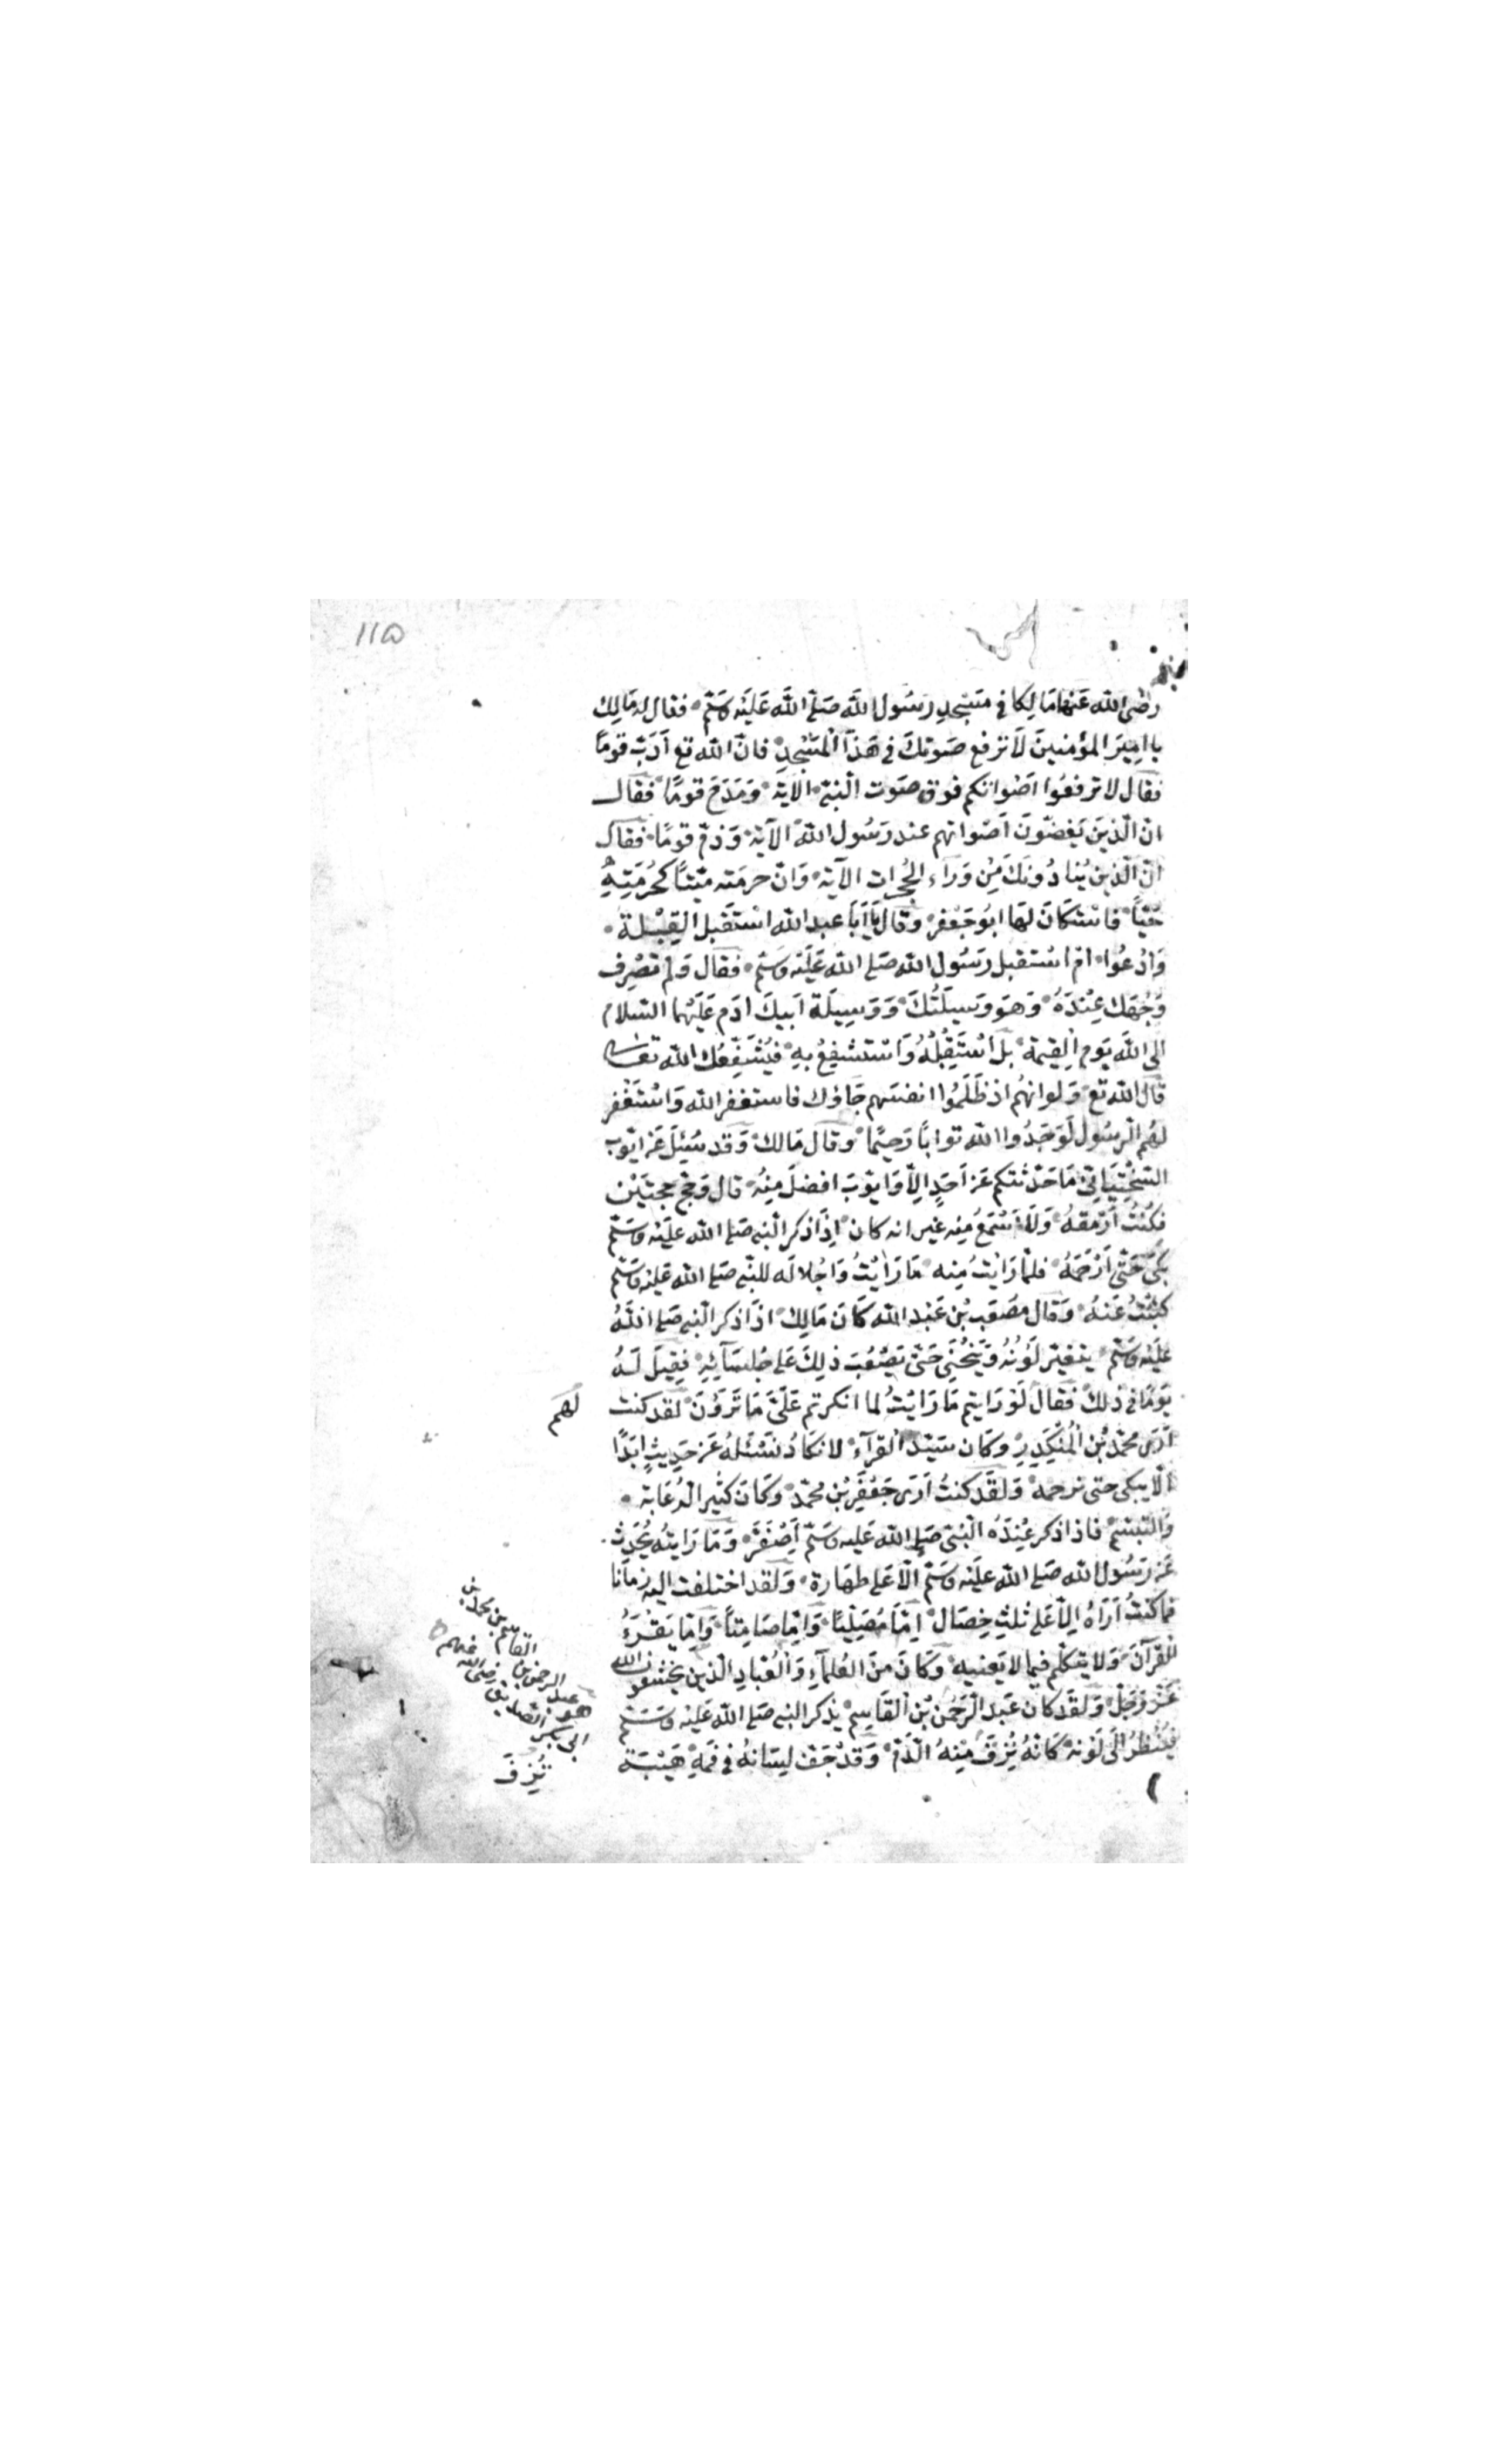 ١١٥
رضى الله عنهما مالكا فى مسجد رسول الله صلى الله عليه وسلم فقال له مالك
يا امير المؤمنين لا ترفع صوتك فى هذا المسجد فان الله تع ادب قوما
فقال لا ترفعوا اصواتكم فوق صوت النبى الاية ومدح قوما فقال
ان الذين يغضون اصواتهم عند رسول الله الآية وذم قوما فقال
ان الذين ينادونك من وراء الحجرات الآية وان حرمته ميتا كحرمته
حيا فاستكان لها ابو جعفر وقال يا ابا عبد الله استقبل القبلة
وادعوا ام استقبل رسول الله صلى الله عليه وسلم فقال ولم تصرف
وجهك عنده وهو وسيلتك ووسيلة ابيك ادم عليهما السلام
الى الله يوم القيمة بل استقبله واستشفع به فيشفعك الله تعالى
قال الله تع ولو انهم اذ ظلموا انفسهم جاؤك فاستغفر الله واستغفر
لهم الرسول لوجدوا الله توابا رحيما وقال مالك وقد سئل عن ايوب
السختيانى ما حدثتكم عن احد الا وايوب افضل منه قال وحج حجتين
فكنت ارمقه ولا اسمع منه غير انه كان اذا ذكر النبى صلى الله عليه وسلم
بكى حتى ارحمه فلما رايت منه ما رايت واجلاله للنبى صلى الله عليه وسلم
كتبت عنه وقال مصعب بن عبد الله كان مالك اذا ذكر النبى صلى الله
عليه وسلم يتغير لونه وينحنى حتى يصعب ذلك على جلسائه فقيل له
يوما فى ذلك فقال لو رايتم ما رايت لما انكرتم على ما ترون لقد كنت
لهم
ارى محمد بن المنكدر وكان سيد القرآء لا نكاد نسئله عن حديث ابدا
الا يبكى حتى نرحمه ولقد كنت ارى جعفر بن محمد وكان كثير الدعابة
والتبسم فاذا ذكر عنده النبى صلى الله عليه وسلم اصفر وما رايته يحدث
عن رسول الله صلى الله عليه وسلم الا على طهارة ولقد اختلفت اليه زمانا
فما كنت اراه الا على ثلث خصال اما مصليا واما صامتا واما يقرء
القرآن ولا يتكلم فيما لا يعنيه وكان من العلمآء والعباد الذين يخشون الله
عز وجل ولقد كان عبد الرحمن بن القاسم يذكر النبى صلى الله عليه وسلم
فينظر الى لونه كانه نزف منه الدم وقد جف لسانه فى فمه هيبة
هو عبد الرحمن بن القاسم بن محمد بن
ابى بكر الصديق رضى الله عنهم
نزف